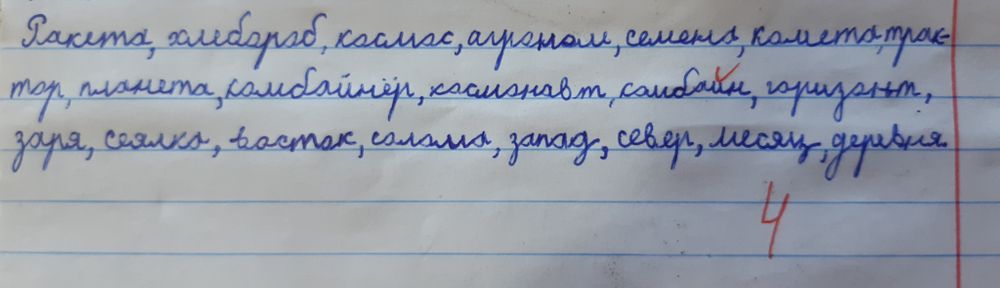 Ракета, хлебороб, космос, агроном, семена, комета, трак-
тор, планета, комбайнёр, космонавт, комбайн, горизонт,
заря, сеялка, восток, солома, запад, север, месяц, деревня.
4